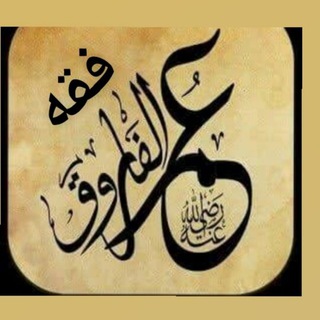 فقه
عمر الفاروق
رضي الله عنه